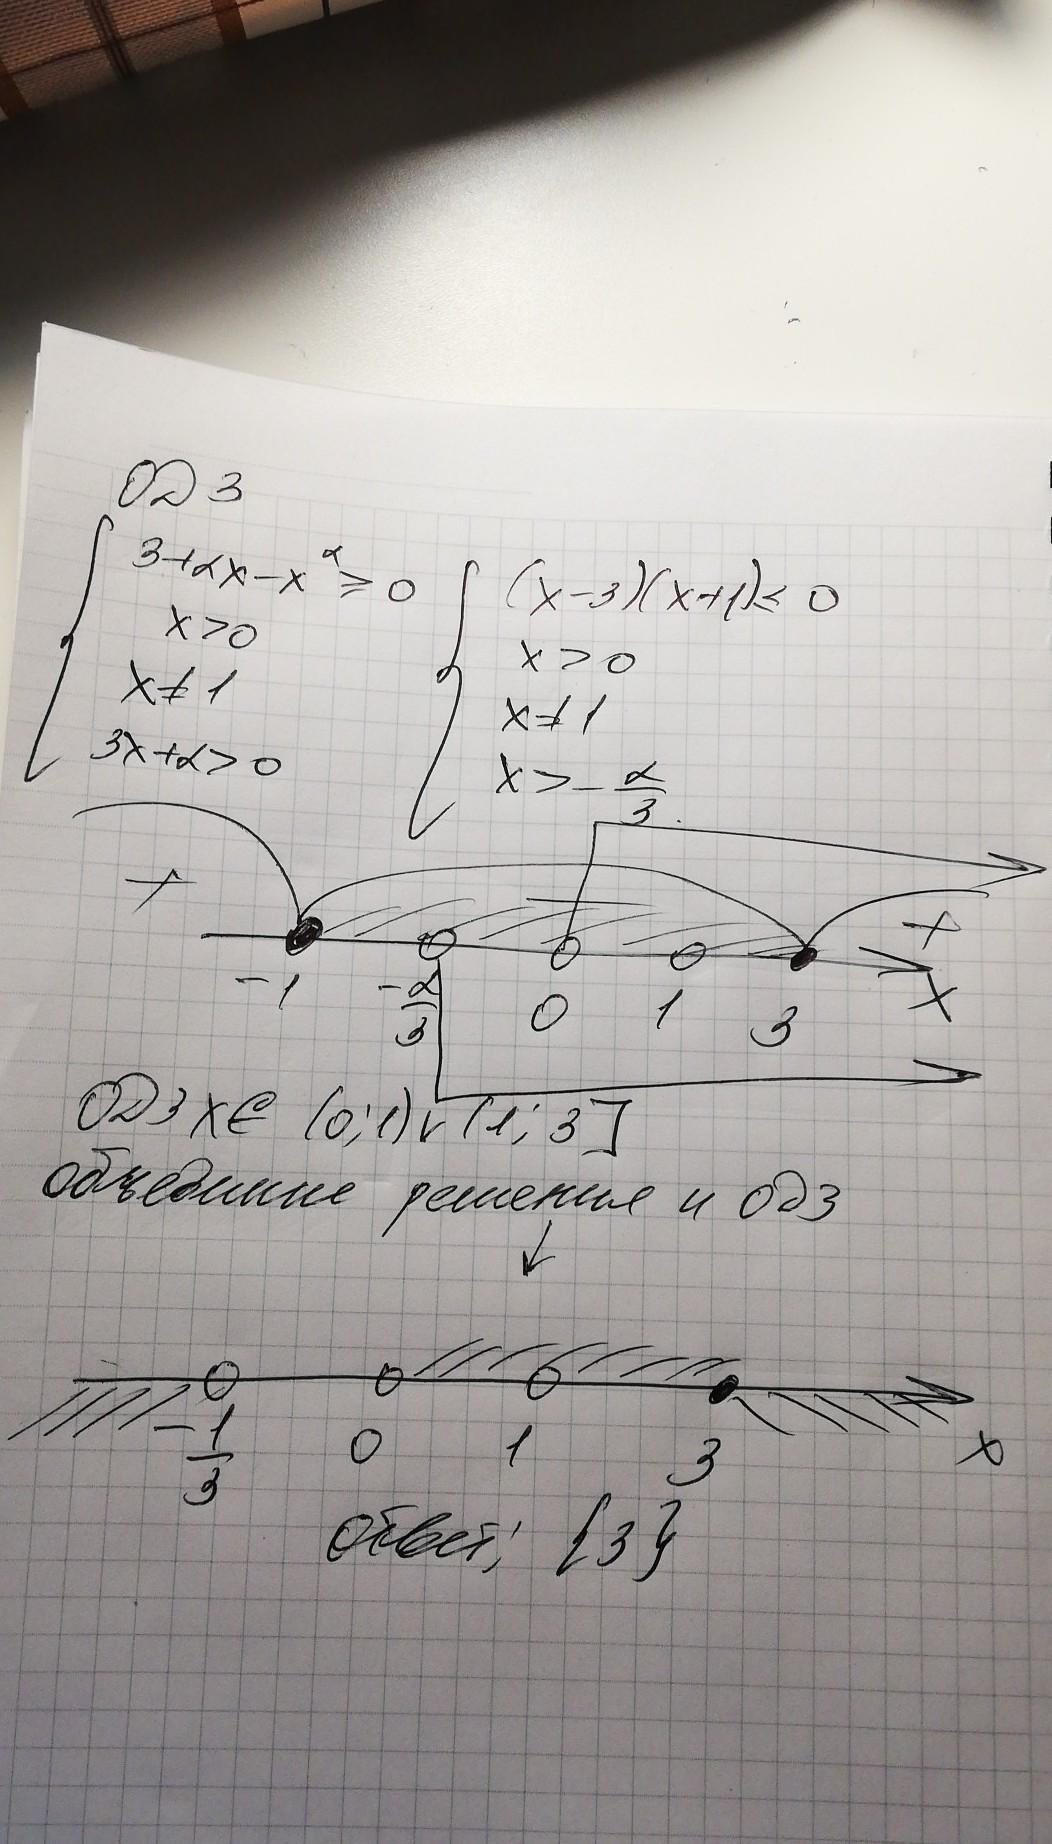 ОДЗ
3+2x-x² ≥ 0
x>0
x≠1
3x+2>0
(x-3)(x+1)≤ 0
x>0
x≠1
x>-2/3.
+ +
-1 -2/3 0 1 3 x
ОДЗ x∈ (0;1)∨(1;3]
объединие решения и ОДЗ
↓
-1/3 0 1 3 x
ответ; {3}